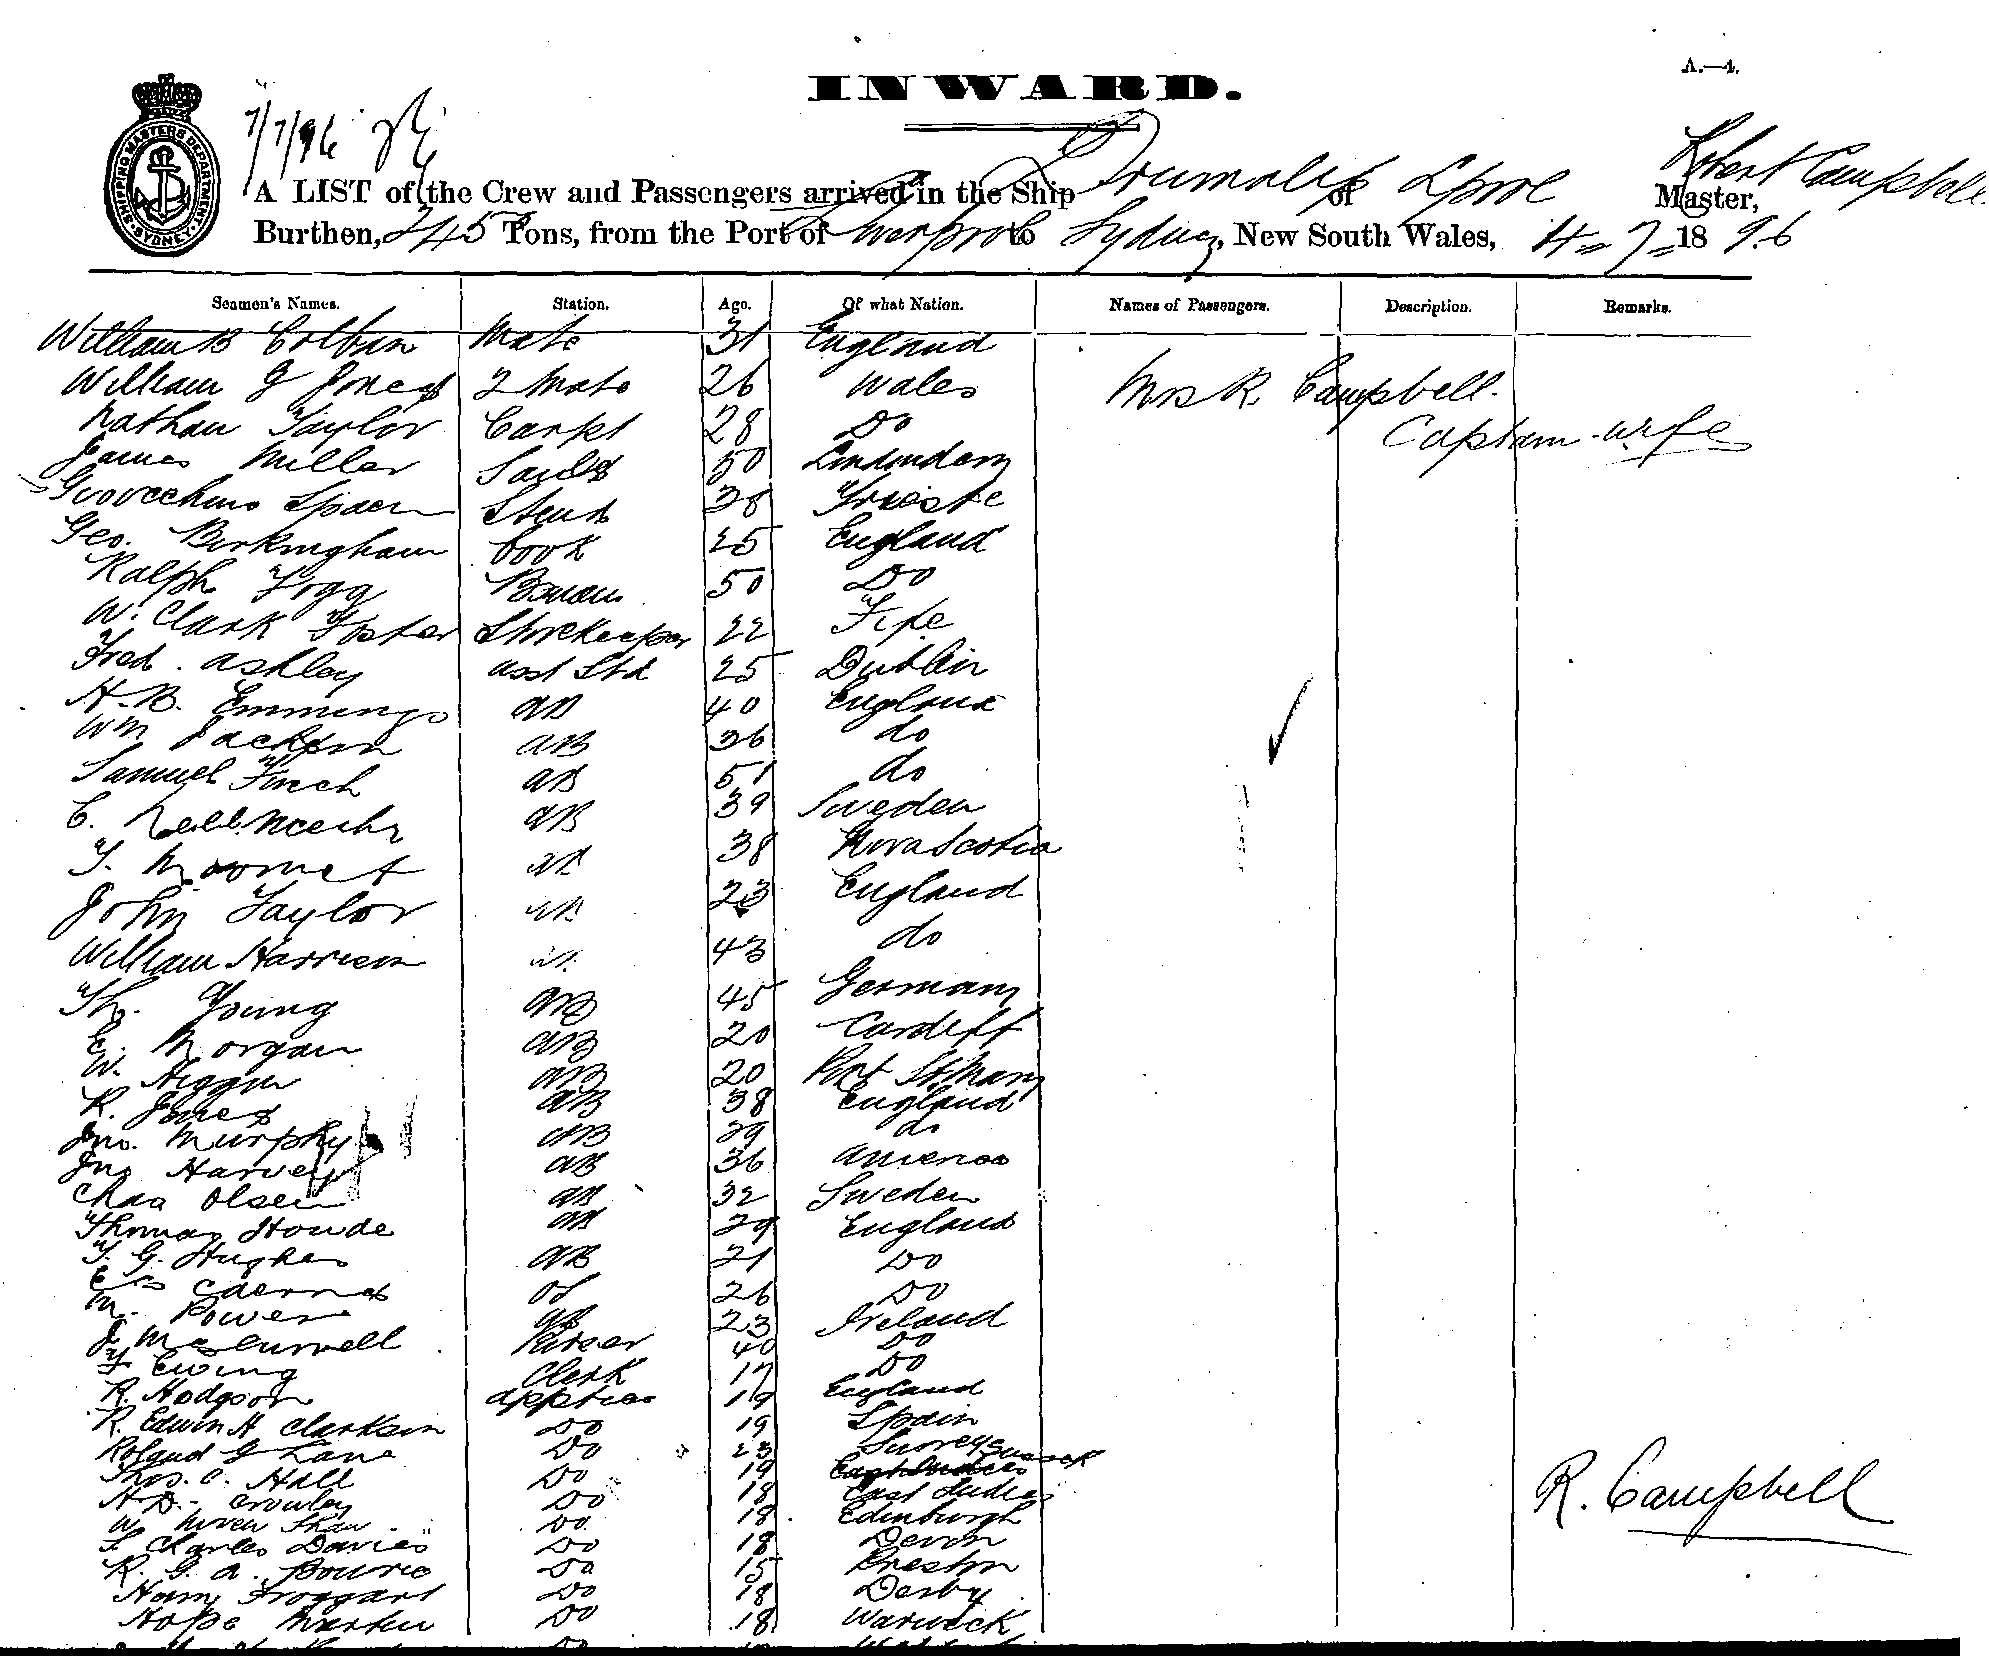 A.—4.
INWARD.
SHIPPING MASTERS DEPARTMENT SYDNEY
7/7/96
A LIST of the Crew and Passengers arrived in the Ship Drumalis of Lpool Robert Campbell Master,
Burthen, Tons, from the Port of Liverpool to Sydney, New South Wales, 4=7=1896
Seamen's Names. Station. Age. Of what Nation. Names of Passengers. Description. Remarks.
William B Colban Mate 31 England
William G Jones 2 Mate 26 Wales Mrs R. Campbell.
Nathan Taylor Carpt 28 Do Captain wife
James Miller 50
38 Trieste
Geo. Birkingham Cook 25 England
Ralph Fogg 50 Do
W. Clark Foster Storekeeper 22 Fife
Fred. Ashley asst Std 25 Dublin
H. B. Emmings AB 40 England
Wm Jackson AB 36 do
Samuel Finch AB 51 do
C. AB 39 Sweden
T. AB 38 Nova Scotia
John Taylor AB 23 England
William Harrison AB 43 do
Th. Young AB 45 Germany
E. Morgan AB 20 Cardiff
W. Higgin AB 20 Port St Mary
R. Jones AB 38 England
Jno. Murphy AB 29 do
Jno Harvey AB 36 America
Chas Olsen AB 32 Sweden
Thomas Howde AB 29 England
T. G. Hughes AB 21 Do
26 Do
M. Power 23 Ireland
J. Purser 40 Do
F Ewing Clerk 17 Do
R. Hodgson apptice 19 England
R. Edwin H Clarkson Do 19 Spain
Roland G Lane Do 23 Surrey
Thos. C. Hall Do 19
H D. Crowley Do 18 East Indies
W. Shaw Do 18 Edinburgh
F Charles Davies Do 18 Devon
R. G. A. Do 15 Preston
Harry Froggart Do 18 Derby
Hope Martin Do 18 Warwick
R. Campbell